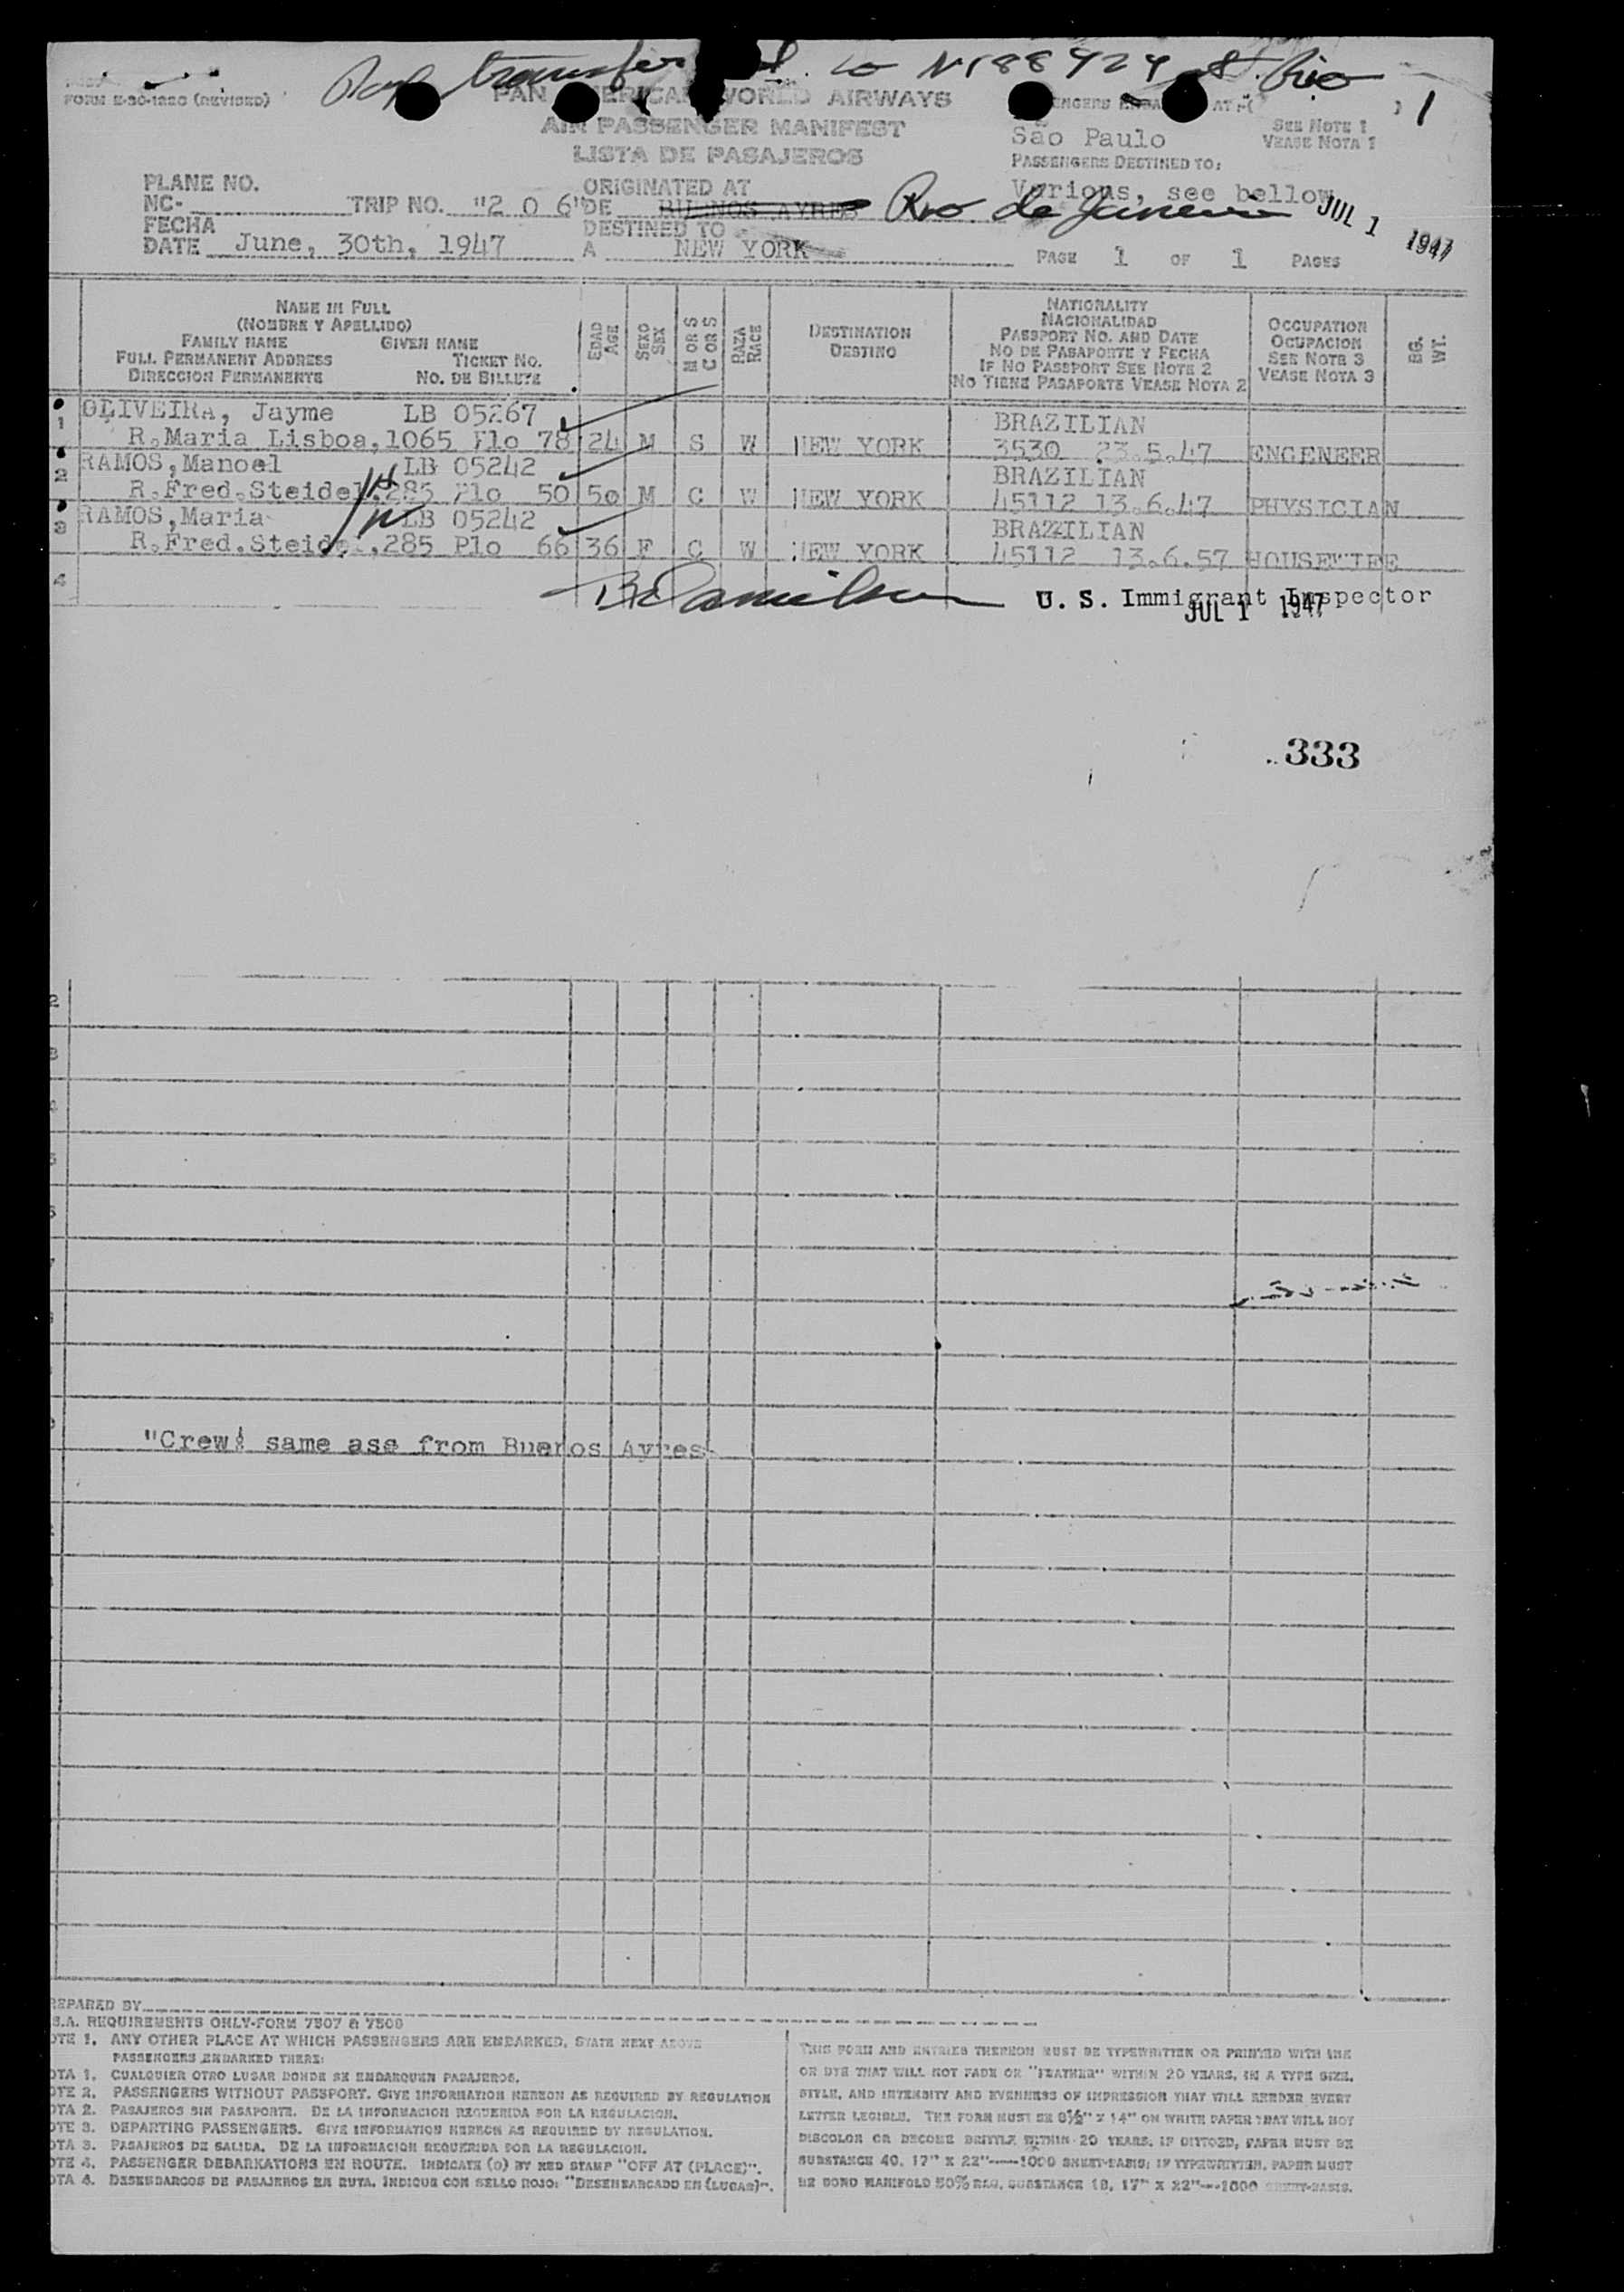 transferred to N 88924 at Rio
FORM E-30-1220 (REVISED)
PAN AMERICAN WORLD AIRWAYS
AIR PASSENGER MANIFEST
LISTA DE PASAJEROS
SEE NOTE 1
VEASE NOTA 1
1
São Paulo
PASSENGERS DESTINED TO:
Various, see bellow
JUL 1 1947
PLANE NO.
NC- TRIP NO. "2 0 6"
FECHA
DATE June, 30th, 1947
ORIGINATED AT
DE BUENOS AYRES Rio de Janeiro
DESTINED TO
A NEW YORK
PAGE 1 OF 1 PAGES
NAME IN FULL
(NOMBRE Y APELLIDO)
FAMILY NAME GIVEN NAME
FULL PERMANENT ADDRESS TICKET NO.
DIRECCION PERMANENTE NO. DE BILLETE
EDAD AGE
SEXO SEX
M OR S C OR S
RAZA RACE
DESTINATION
DESTINO
NATIONALITY
NACIONALIDAD
PASSPORT NO. AND DATE
NO DE PASAPORTE Y FECHA
IF NO PASSPORT SEE NOTE 2
NO TIENE PASAPORTE VEASE NOTA 2
OCCUPATION
OCUPACION
SEE NOTE 3
VEASE NOTA 3
BG. WT.
1 OLIVEIRA, Jayme LB 05267 BRAZILIAN
R.Maria Lisboa,1065 Plo 78 24 M S W NEW YORK 3530 23.5.47 ENGENEER
2 RAMOS,Manoel LB 05242 BRAZILIAN
R.Fred.Steidel,285 Plo 50 50 M C W NEW YORK 45112 13.6.47 PHYSICIAN
3 RAMOS,Maria LB 05242 BRAZILIAN
R.Fred.Steidel,285 Plo 66 36 F C W NEW YORK 45112 13.6.57 HOUSEWIFE
4
U. S. Immigrant Inspector
JUL 1 1947
333
"Crew: same ass from Buenos Ayres
PREPARED BY
S.A. REQUIREMENTS ONLY-FORM 7507 & 7508
NOTE 1. ANY OTHER PLACE AT WHICH PASSENGERS ARE EMBARKED, STATE NEXT ABOVE
PASSENGERS EMBARKED THERE:
NOTA 1. CUALQUIER OTRO LUGAR DONDE SE EMBARQUEN PASAJEROS.
NOTE 2. PASSENGERS WITHOUT PASSPORT. GIVE INFORMATION HEREON AS REQUIRED BY REGULATION
NOTA 2. PASAJEROS SIN PASAPORTE. DE LA INFORMACION REQUERIDA POR LA REGULACION.
NOTE 3. DEPARTING PASSENGERS. GIVE INFORMATION HEREON AS REQUIRED BY REGULATION.
NOTA 3. PASAJEROS DE SALIDA. DE LA INFORMACION REQUERIDA POR LA REGULACION.
NOTE 4. PASSENGER DEBARKATIONS EN ROUTE. INDICATE (O) BY RED STAMP "OFF AT (PLACE)".
NOTA 4. DESEMBARCOS DE PASAJEROS EN RUTA. INDIQUE CON SELLO ROJO: "DESEMBARCADO EN (LUGAR)".
THIS FORM AND ENTRIES THEREON MUST BE TYPEWRITTEN OR PRINTED WITH INK
OR DYE THAT WILL NOT FADE OR "FEATHER" WITHIN 20 YEARS, IN A TYPE SIZE,
STYLE, AND INTENSITY AND EVENNESS OF IMPRESSION THAT WILL RENDER EVERY
LETTER LEGIBLE. THE FORM MUST BE 8½" X 14" ON WHITE PAPER THAT WILL NOT
DISCOLOR OR BECOME BRITTLE WITHIN 20 YEARS. IF DITTOED, PAPER MUST BE
SUBSTANCE 40, 17" X 22"----1000 SHEET-BASIS; IF TYPEWRITTEN, PAPER MUST
BE BOND MANIFOLD 50% RAG, SUBSTANCE 18, 17" X 22"---1000 SHEET-BASIS.